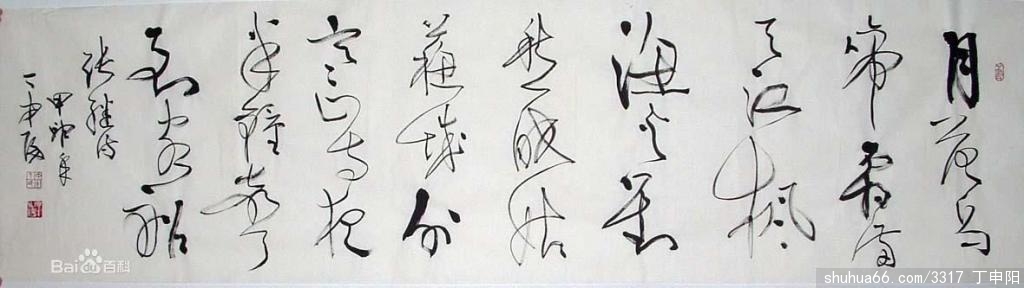 月落烏
啼霜滿
天江楓
漁火對
愁眠姑
蘇城外
寒山寺夜
半鐘聲
到客船
張繼詩
甲申年
丁申陽
Bai百科
shuhua66.com/3317 丁申阳